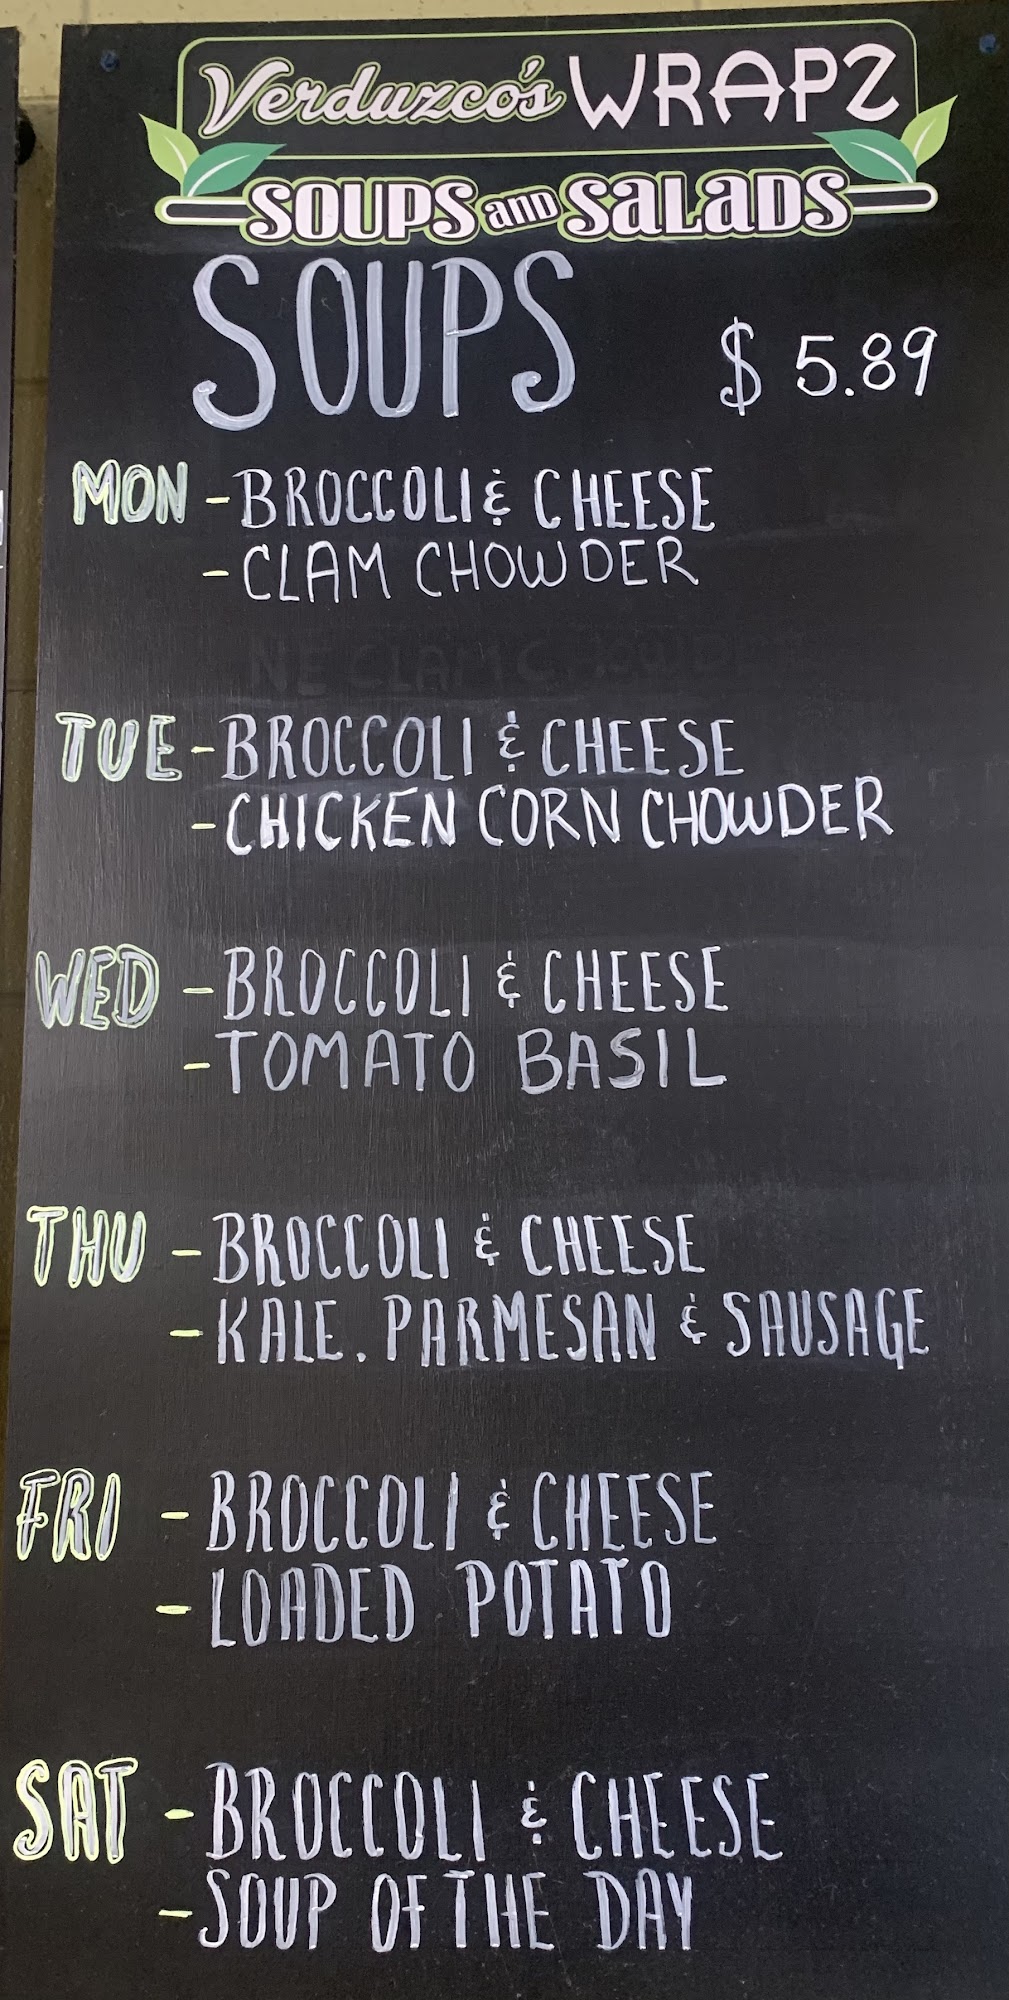 Verduzco's WRAPZ
SOUPS and SALADS
SOUPS $ 5.89
MON - BROCCOLI & CHEESE
- CLAM CHOWDER
NE CLAM CHOWDER
TUE - BROCCOLI & CHEESE
- CHICKEN CORN CHOWDER
WED - BROCCOLI & CHEESE
- TOMATO BASIL
THU - BROCCOLI & CHEESE
- KALE. PARMESAN & SAUSAGE
FRI - BROCCOLI & CHEESE
- LOADED POTATO
SAT - BROCCOLI & CHEESE
- SOUP OF THE DAY